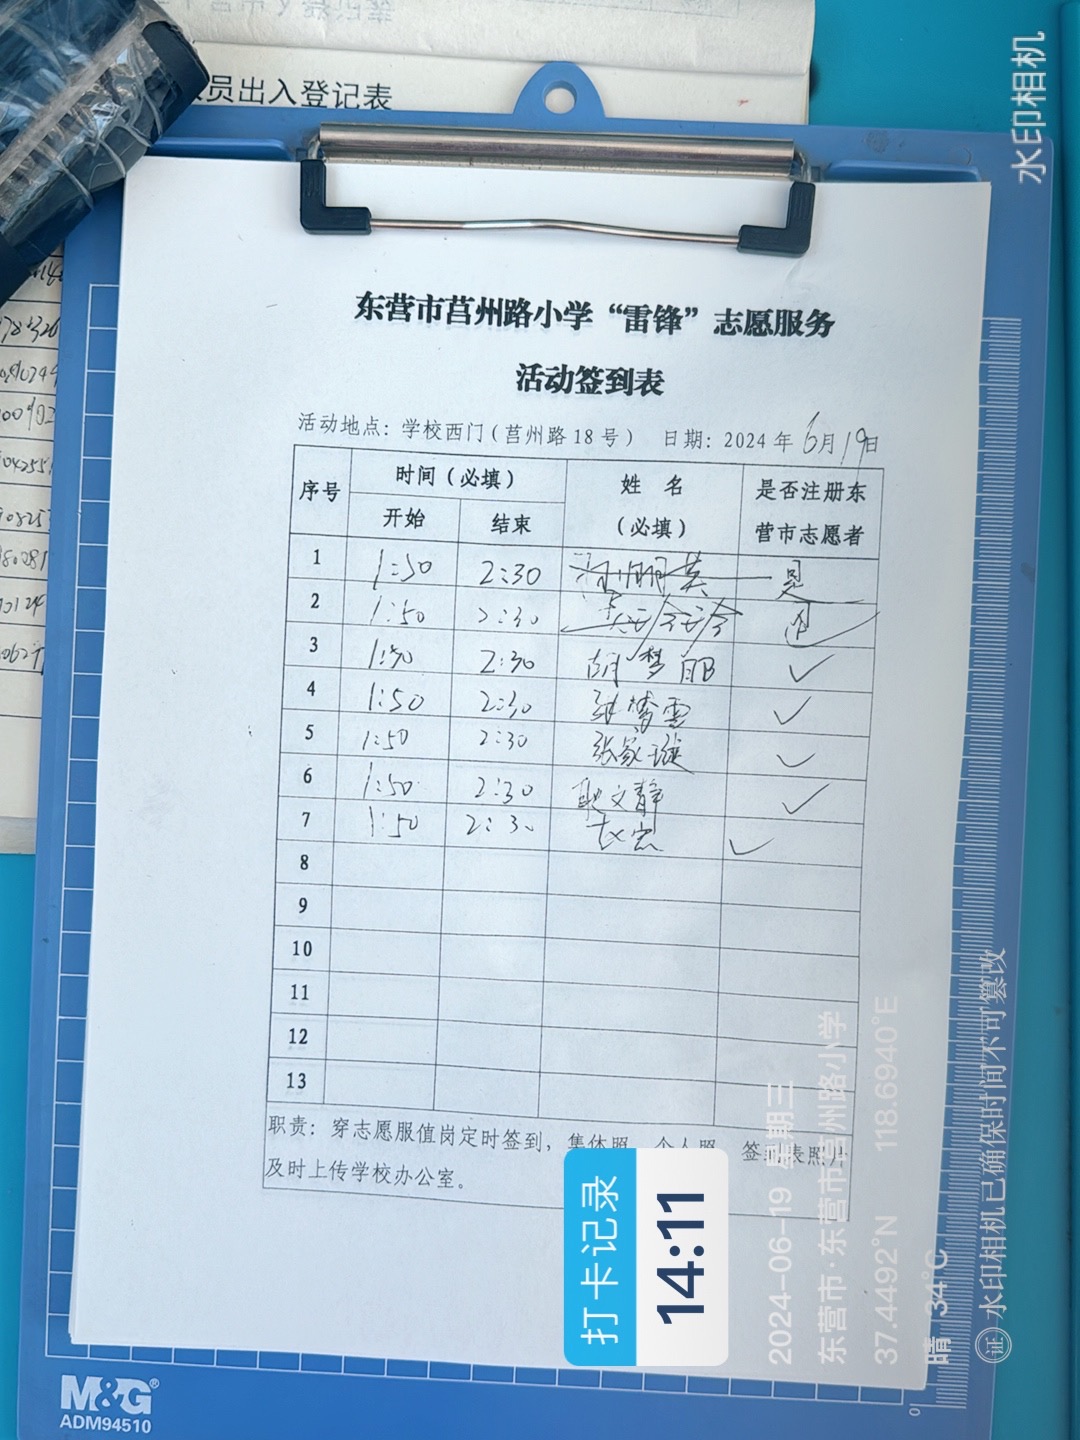 员出入登记表
水印相机
东营市莒州路小学“雷锋”志愿服务
活动签到表
活动地点：学校西门（莒州路18号） 日期：2024年6月19日
序号 时间（必填） 姓名（必填） 是否注册东营市志愿者
开始 结束
1 1:50 2:30 是
2 1:50 2:30
3 1:50 2:30 胡梦
4 1:50 2:30 张梦雪 ✓
5 1:50 2:30 张家璇 ✓
6 1:50 2:30 耿文静 ✓
7 1:50 2:30 ✓
8
9
10
11
12
13
职责：穿志愿服值岗定时签到，集体照、个人照、签到表照片
及时上传学校办公室。
打卡记录
14:11
2024-06-19 星期三
东营市·东营市莒州路小学
37.4492°N 118.6940°E
晴 34°C
证 水印相机已确保时间不可篡改
M&G
ADM94510